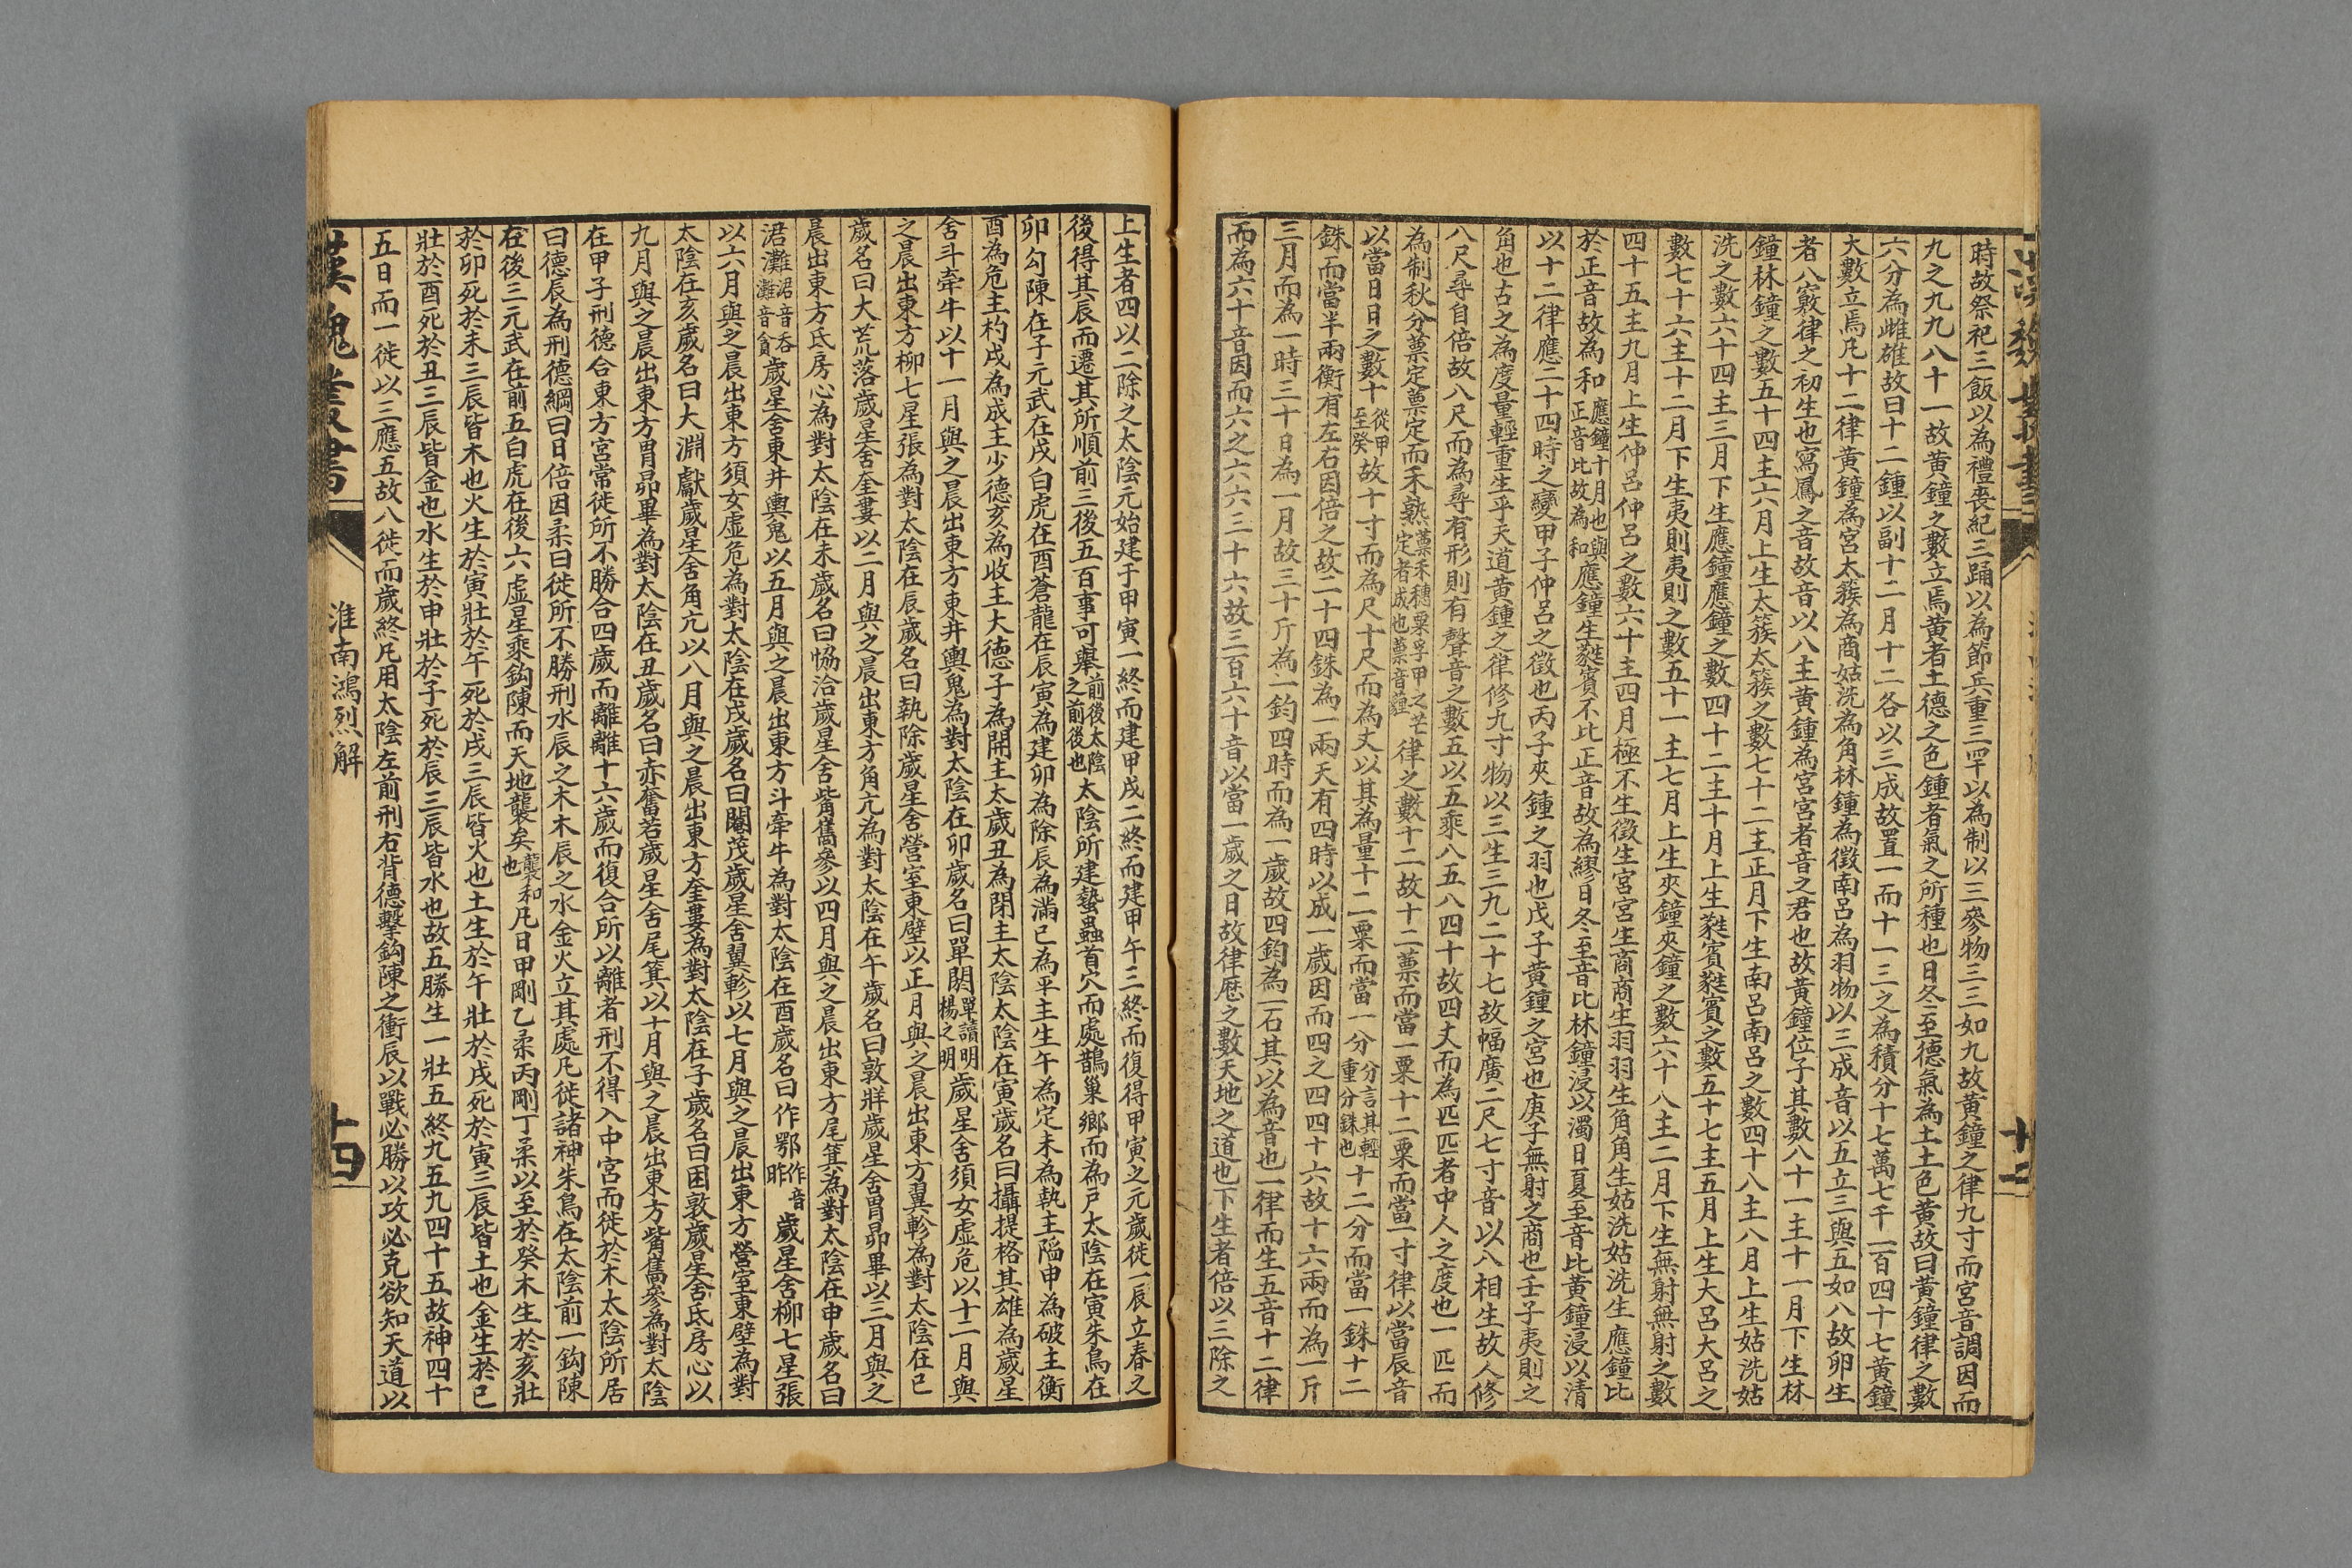 時故祭祀三飯以為禮喪紀三踊以為節兵重三罕以為制以三參物三三如九故黃鐘之律九寸而宮音調因而
九之九九八十一故黃鐘之數立焉黃者土德之色鍾者氣之所種也日冬至德氣為土土色黃故曰黃鐘律之數
六分為雌雄故曰十二鍾以副十二月十二各以三成故置一而十一三之為積分十七萬七千一百四十七黃鐘
大數立焉凡十二律黃鐘為宮太簇為商姑洗為角林鐘為徵南呂為羽物以三成音以五立三與五如八故卯生
者八竅律之初生也寫鳳之音故音以八主黃鍾為宮宮者音之君也故黃鐘位子其數八十一主十一月下生林
鐘林鐘之數五十四主六月上生太簇太簇之數七十二主正月下生南呂南呂之數四十八主八月上生姑洗姑
洗之數六十四主三月下生應鐘應鐘之數四十二主十月上生蕤賓蕤賓之數五十七主五月上生大呂大呂之
數七十六主十二月下生夷則夷則之數五十一主七月上生夾鐘夾鐘之數六十八主二月下生無射無射之數
四十五主九月上生仲呂仲呂之數六十主四月極不生徵生宮宮生商商生羽羽生角角生姑洗姑洗生應鐘比
於正音故為和應鐘十月也與正音比故為和應鐘生蕤賓不比正音故為繆日冬至音比林鐘浸以濁日夏至音比黃鐘浸以清
以十二律應二十四時之變甲子仲呂之徵也丙子夾鐘之羽也戊子黃鐘之宮也庚子無射之商也壬子夷則之
角也古之為度量輕重生乎天道黃鍾之律修九寸物以三生三九二十七故幅廣二尺七寸音以八相生故人修
八尺尋自倍故八尺而為尋有形則有聲音之數五以五乘八五八四十故四丈而為匹匹者中人之度也一匹而
為制秋分蔈定蔈定而禾熟蔈禾穗粟孚甲之芒定者成也蔈音蔈律之數十二故十二蔈而當一粟十二粟而當一寸律以當辰音
以當日日之數十從甲至癸故十寸而為尺十尺而為丈以其為量十二粟而當一分分言其輕重分銖也十二分而當一銖十二
銖而當半兩衡有左右因倍之故二十四銖為一兩天有四時以成一歲因而四之四四十六故十六兩而為一斤
三月而為一時三十日為一月故三十斤為一鈞四時而為一歲故四鈞為一石其以為音也一律而生五音十二律
而為六十音因而六之六六三十六故三百六十音以當一歲之日故律歷之數天地之道也下生者倍以三除之
上生者四以三除之太陰元始建于甲寅一終而建甲戌二終而建甲午三終而復得甲寅之元歲徙一辰立春之
後得其辰而遷其所順前三後五百事可舉前後太陰之前後也太陰所建蟄蟲首穴而處鵲巢鄉而為戶太陰在寅朱鳥在
卯勾陳在子元武在戌白虎在酉蒼龍在辰寅為建卯為除辰為滿巳為平主生午為定未為執主陷申為破主衡
酉為危主杓戌為成主少德亥為收主大德子為開主太歲丑為閉主太陰太陰在寅歲名曰攝提格其雄為歲星
舍斗牽牛以十一月與之晨出東方東井輿鬼為對太陰在卯歲名曰單閼單讀明楊之明歲星舍須女虛危以十二月與
之晨出東方柳七星張為對太陰在辰歲名曰執除歲星舍營室東壁以正月與之晨出東方翼軫為對太陰在巳
歲名曰大荒落歲星舍奎婁以二月與之晨出東方角亢為對太陰在午歲名曰敦牂歲星舍胃昴畢以三月與之
晨出東方氐房心為對太陰在未歲名曰協洽歲星舍觜觿參以四月與之晨出東方尾箕為對太陰在申歲名曰
涒灘涒音吞灘音貪歲星舍東井輿鬼以五月與之晨出東方斗牽牛為對太陰在酉歲名曰作鄂作音昨歲星舍柳七星張
以六月與之晨出東方須女虛危為對太陰在戌歲名曰閹茂歲星舍翼軫以七月與之晨出東方營室東壁為對
太陰在亥歲名曰大淵獻歲星舍角亢以八月與之晨出東方奎婁為對太陰在子歲名曰困敦歲星舍氐房心以
九月與之晨出東方胃昴畢為對太陰在丑歲名曰赤奮若歲星舍尾箕以十月與之晨出東方觜觿參為對太陰
在甲子刑德合東方宮常徙所不勝合四歲而離離十六歲而復合所以離者刑不得入中宮而徙於木太陰所居
曰德辰為刑德綱曰日倍因柔日徙所不勝刑水辰之木木辰之水金火立其處凡徙諸神朱鳥在太陰前一鉤陳
在後三元武在前五白虎在後六虛星乘鉤陳而天地襲矣襲和也凡日甲剛乙柔丙剛丁柔以至於癸木生於亥壯
於卯死於未三辰皆木也火生於寅壯於午死於戌三辰皆火也土生於午壯於戌死於寅三辰皆土也金生於巳
壯於酉死於丑三辰皆金也水生於申壯於子死於辰三辰皆水也故五勝生一壯五終九五九四十五故神四十
五日而一徙以三應五故八徙而歲終凡用太陰左前刑右背德擊鉤陳之衝辰以戰必勝以攻必克欲知天道以
漢魏叢書 淮南鴻烈解 十四